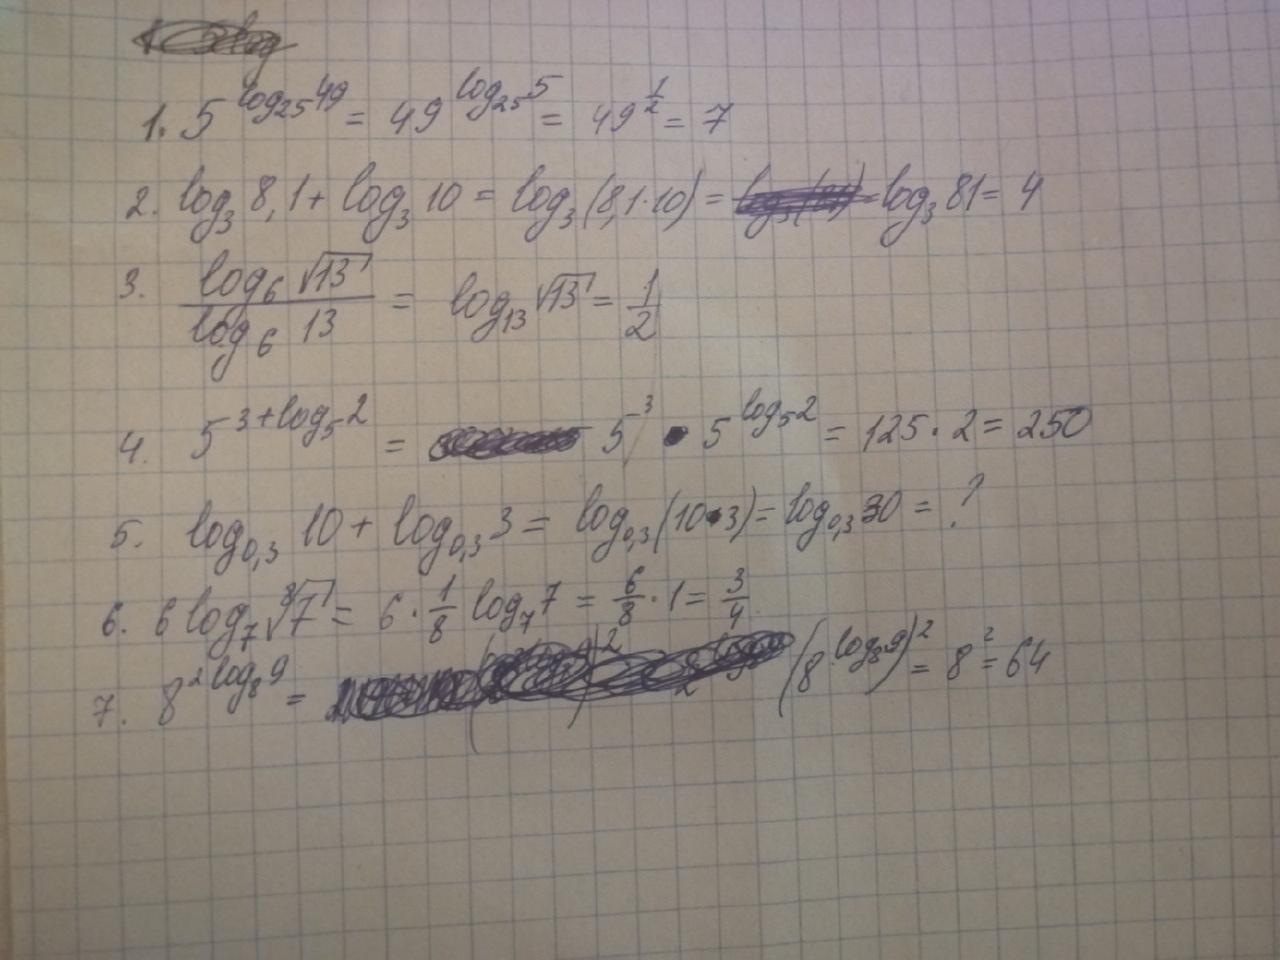 1. 5^{log_{25}49} = 49^{log_{25}5} = 49^{1/2} = 7
2. log_3 8,1 + log_3 10 = log_3 (8,1·10) = log_3 81 = 4
3. \frac{log_6 √13}{log_6 13} = log_{13} √13 = \frac{1}{2}
4. 5^{3+log_5 2} = 5^3 · 5^{log_5 2} = 125 · 2 = 250
5. log_{0,3} 10 + log_{0,3} 3 = log_{0,3} (10·3) = log_{0,3} 30 = ?
6. 6 log_7 \sqrt[8]{7} = 6 · \frac{1}{8} log_7 7 = \frac{6}{8} · 1 = \frac{3}{4}
7. 8^{2 log_8 9} = (8^{log_8 9})^2 = 8^2 = 64